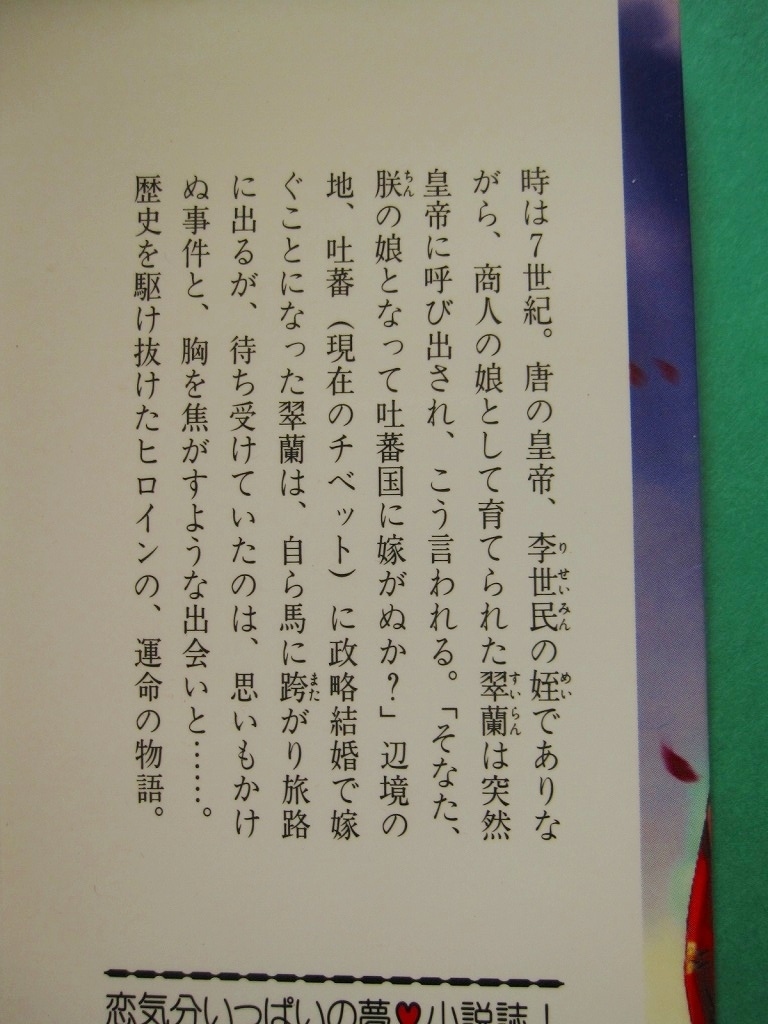 時は7世紀。唐の皇帝、李世民の姪でありな
がら、商人の娘として育てられた翠蘭は突然
皇帝に呼び出され、こう言われる。「そなた、
朕の娘となって吐蕃国に嫁がぬか？」辺境の
地、吐蕃（現在のチベット）に政略結婚で嫁
ぐことになった翠蘭は、自ら馬に跨がり旅路
に出るが、待ち受けていたのは、思いもかけ
ぬ事件と、胸を焦がすような出会いと……。
歴史を駆け抜けたヒロインの、運命の物語。
恋気分いっぱいの夢♥小説誌！